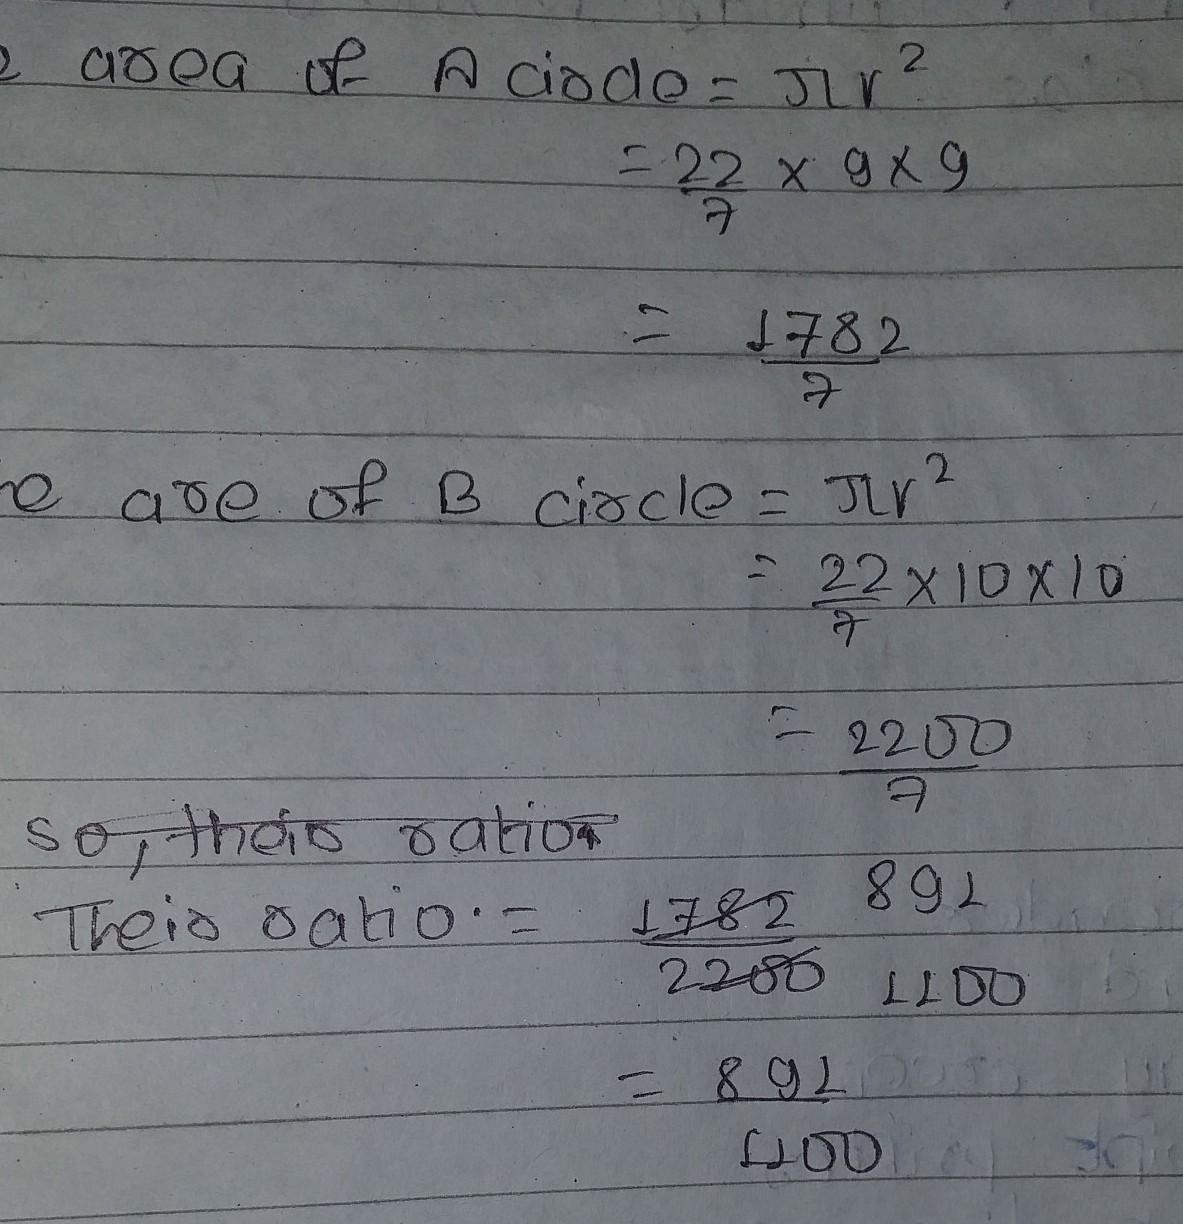 area of A circle = πr²
= 22/7 × 9 × 9
= 1782/7
are of B circle = πr²
= 22/7 × 10 × 10
= 2200/7
so, their ratio
Their ratio = 1782/2200 891/1100
= 891/1100